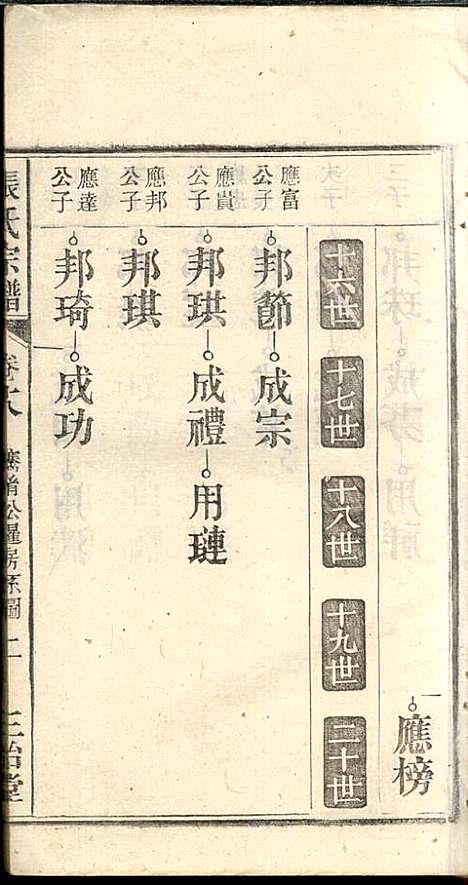 應榜
十六世 十七世 十八世 十九世 二十世
應富公子 邦節 成宗
應貴公子 邦珙 成禮 用璉
應邦公子 邦琪
應達公子 邦琦 成功
張氏宗譜 卷 公 房系圖 二 三治堂